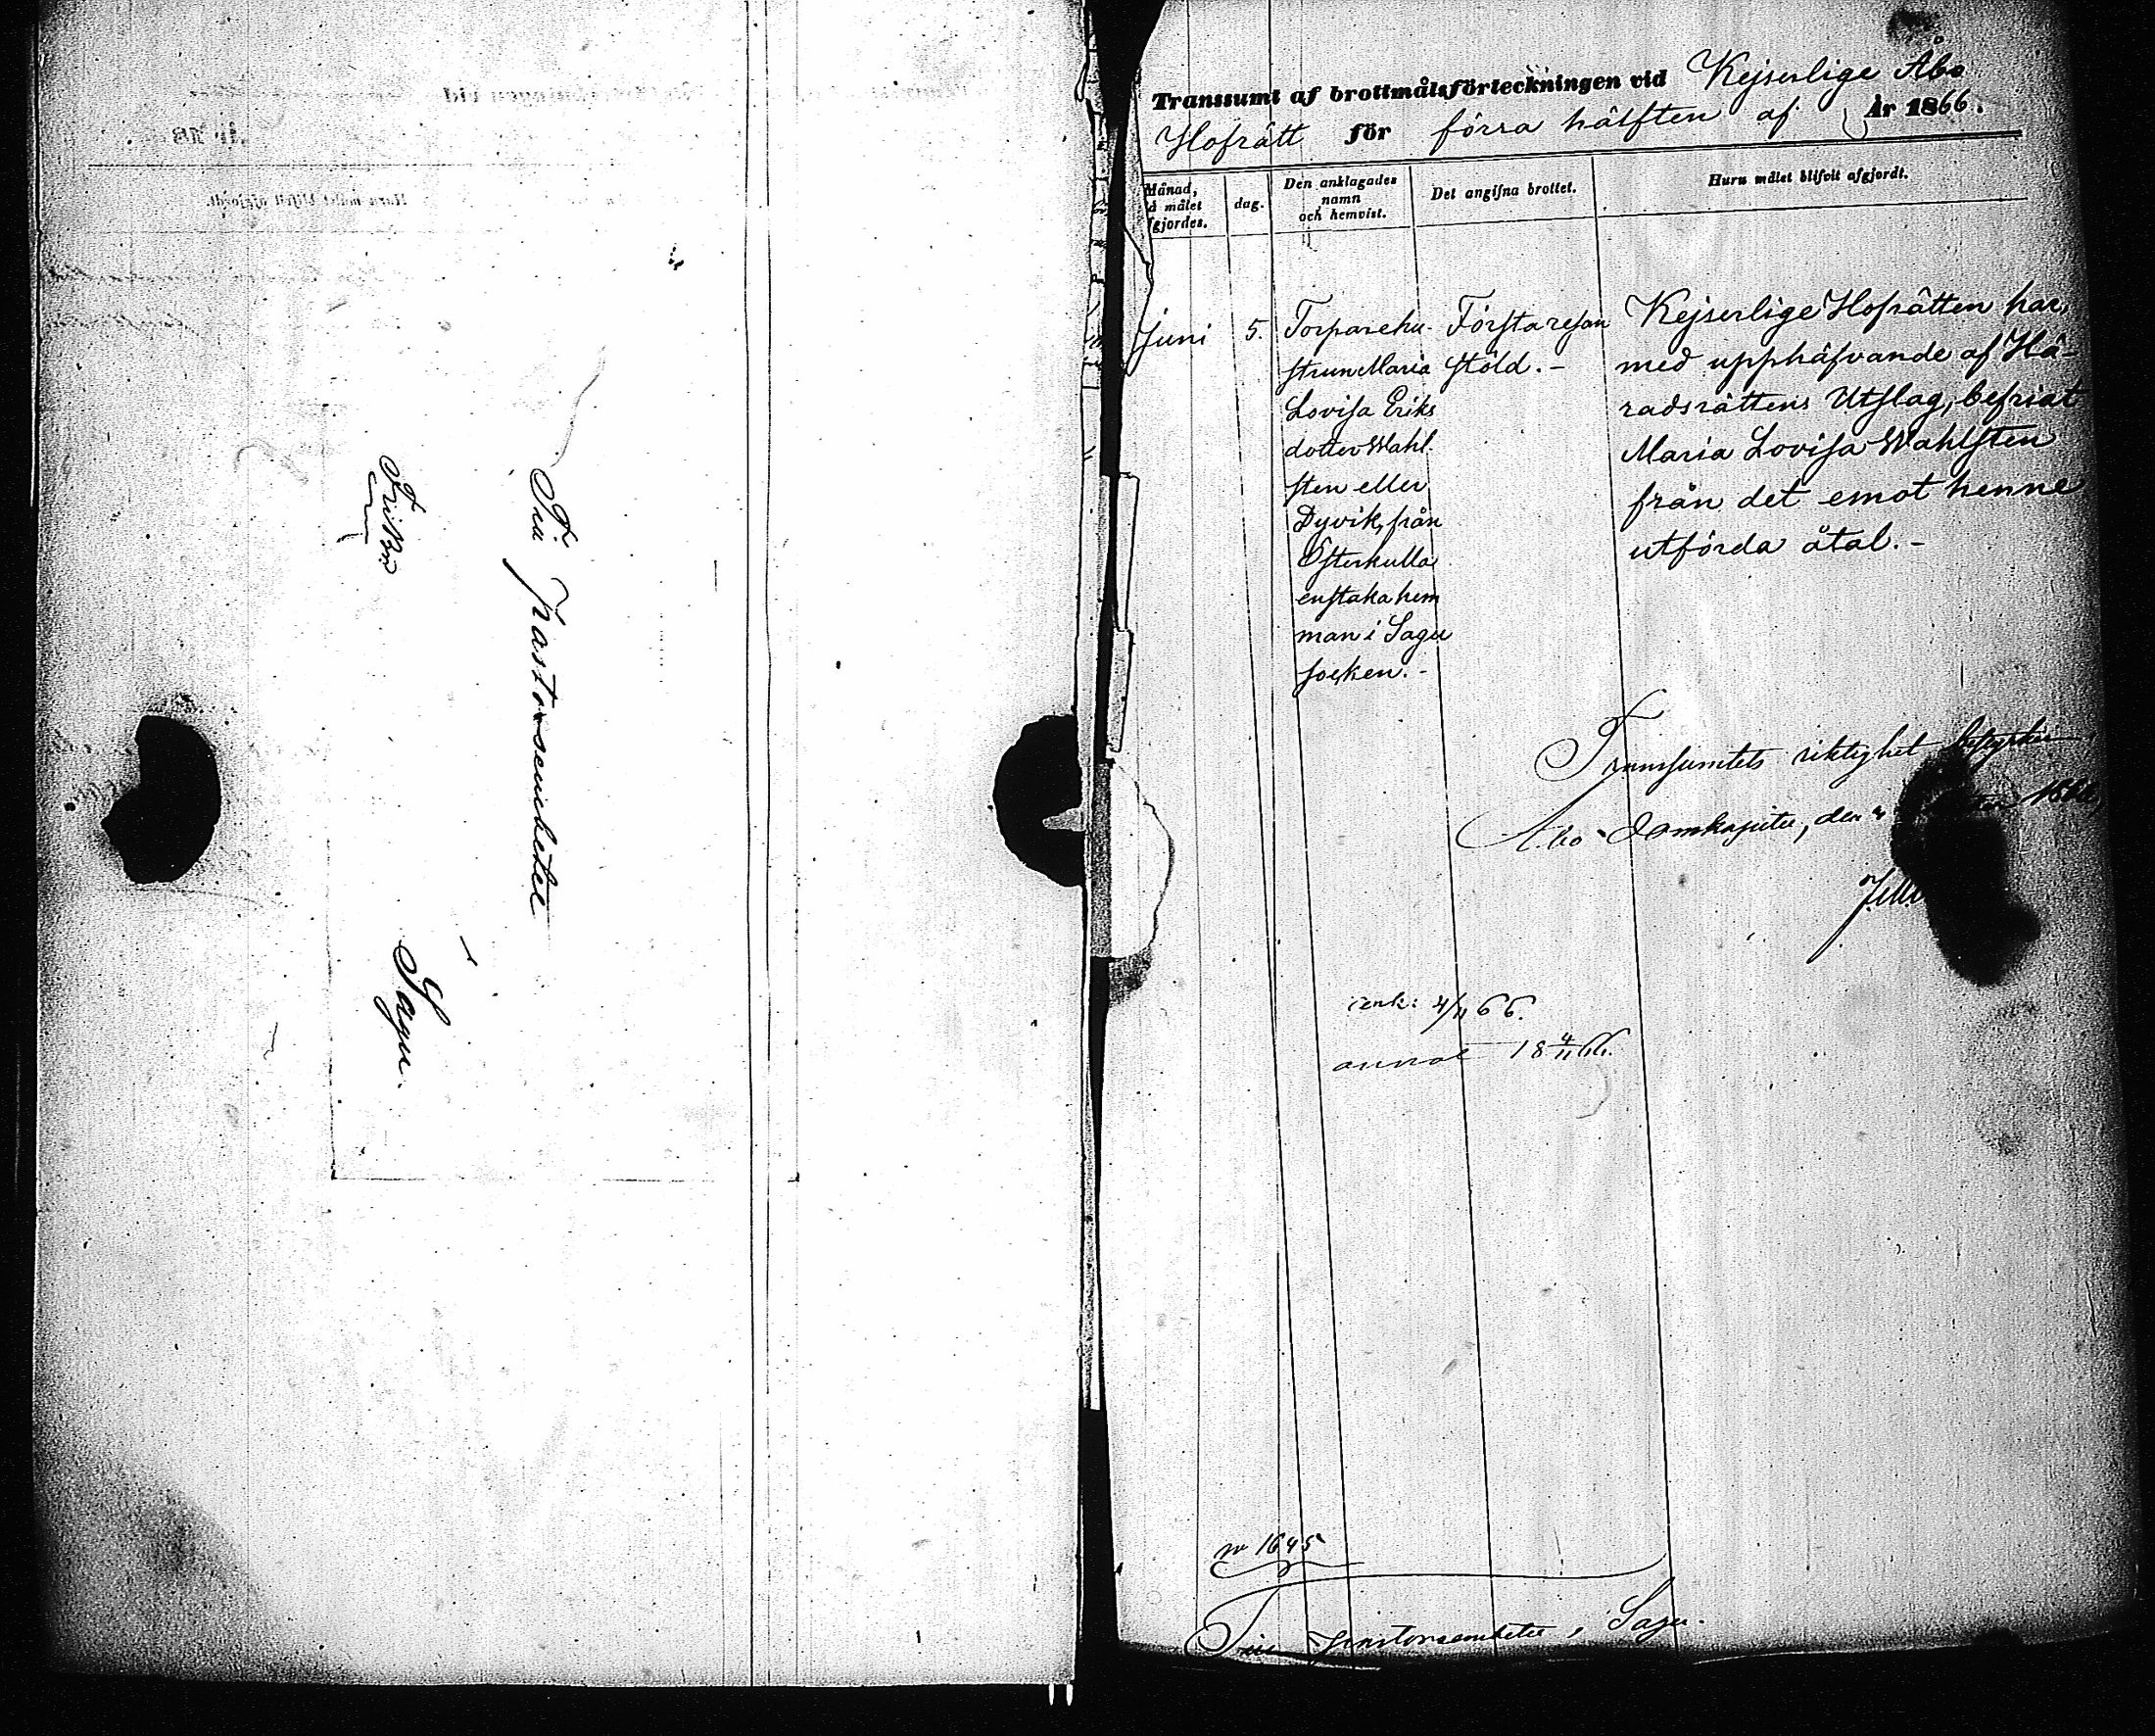 Fribref
Till Pastorsembetet
i
Sagu.
Transsumt af brottmålsförteckningen vid Kejserlige Åbo
Hofrätt för förra hälften af År 1866.
Månad,
å målet
fgjordes.
dag.
Den anklagades
namn
och hemvist.
Det angifna brottet.
Huru målet blifvit afgjordt.
Juni
5.
Torparehu-
strun Maria
Lovisa Eriks
dotter Wahl-
sten eller
Dyvik, från
Österkulla
enstaka hem
man i Sagu
socken. -
Första resan
stöld. -
Kejserlige Hofrätten har,
med upphäfvande af Hä-
radsrättens Utslag, befriat
Maria Lovisa Wahlsten
från det emot henne
utförda åtal. -
Transsumtets riktighet bestyrker
Åbo Domkapitel, den 1866,
ienk: 4/11 66.
annot 18 4/11 66.
No 1645
Till Pastorsembetet i Sagu.